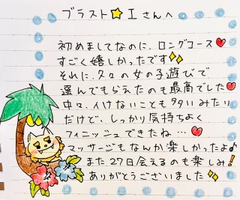 ブラスト⭐Iさんへ
初めましてなのに、ロングコース❤
すごく嬉しかったです✨
それに、久々の女の子遊びで
選んでもらえたのも最高でした❤
中々、イけないことも多いみたり
だけど、しっかり気持ちよく
フィニッシュできたね…❤
マッサージもなんか楽しかったよ♪
また27日会えるのも楽しみ!
ありがとうございました✨